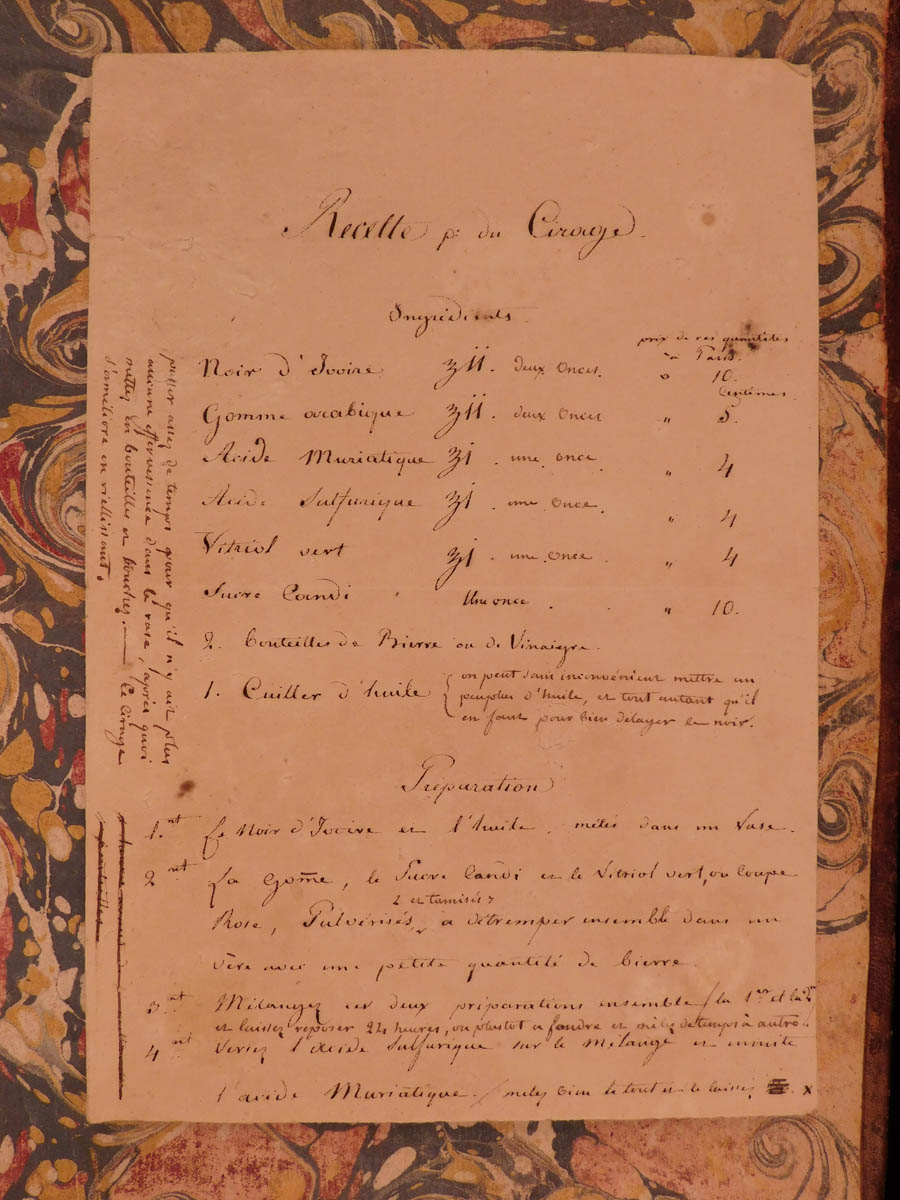 Recette p: du Cirage.
Ingrédients
prix de ces quantités
à Paris.
Noir d'Ivoire ʒii. deux onces. " 10.
Centimes.
Gomme arabique ʒii. deux onces " 5.
Acide Muriatique ʒi . une once " 4
Acide Sulfurique ʒi . une once. " 4
Vitriol vert ʒi . une once " 4
Sucre Candi " Une once . " 10.
2. bouteilles de Bierre ou de Vinaigre.
1. Cuiller d'huile { on peut sans inconvénient mettre un
peu plus d'huile, et tout autant qu'il
en faut pour bien délayer le noir.
Préparation
1.nt Le Noir d'Ivoire et l'huile, mêlés dans un Vase.
2nt La Gome, le Sucre Candi et le Vitriol vert, ou Coupe
2 et tamisés
Rose, Pulvérisés, à détremper ensemble dans un
vère avec une petite quantité de bierre.
3nt Mélangez ces deux préparations ensemble / la 1ere et la 2e
et laissez reposer 24 heures, ou plustot a fondre et mêlé de temps à autre.
4nt Versez l'acide Sulfurique sur le Mélange et ensuite
l'acide Muriatique. / melez bien le tout et le laissez x
poser assez de temps pour qu'il n'y ait plus
aucune effervessence dans le vase, après quoi
mettez en bouteilles et bouchez. — Ce cirage
s'améliore en viellissant.